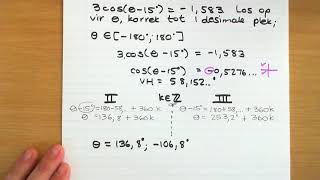 3cos(θ-15°) = -1,583 Los op
vir θ, korrek tot 1 desimale plek;
θ ∈ [-180°; 180°]
3cos(θ-15°) = -1,583
cos(θ-15°) = -0,5276...
VH = 58,152..°
II k∈ℤ III
θ-15°=180-58... + 360k θ-15°=180+58,... + 360k
θ = 136,8° + 360k θ = 253,2° + 360k
θ = 136,8°; -106,8°